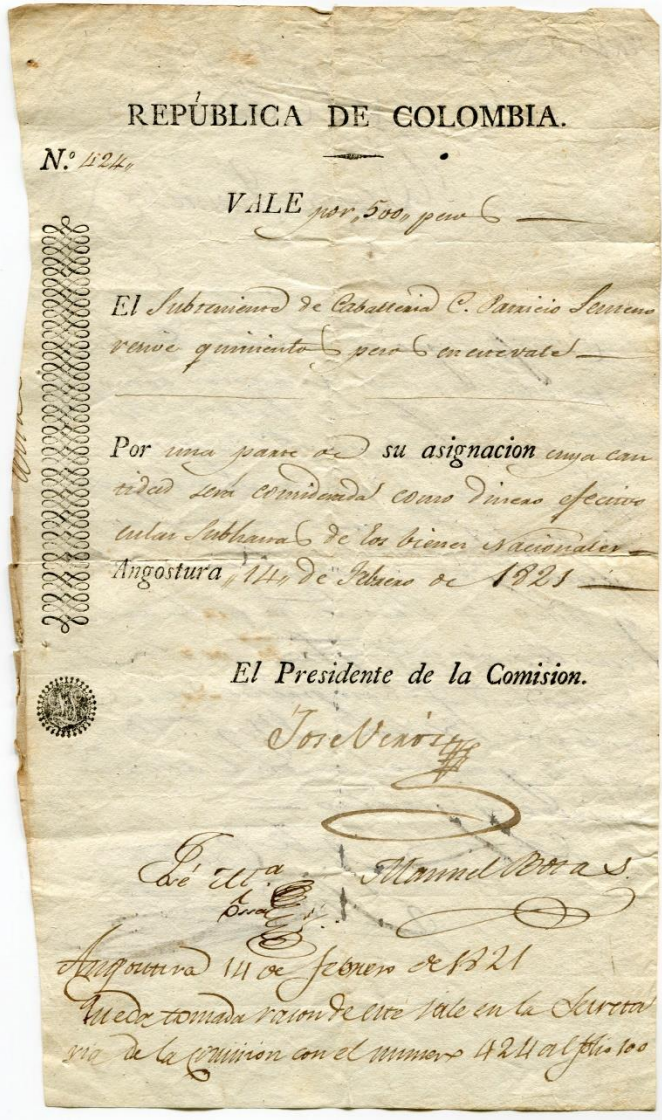 REPÚBLICA DE COLOMBIA.
N.º 424,,
VALE por,, 500,, pesos
El Subteniente de Caballeria C. Patricio Serrano
tiene quinientos pesos en este vale
Por una parte de su asignacion cuya can
tidad será considerada como dinero efectivo
en las Subhastas de los bienes Nacionales
Angostura,, 14,, de Febrero de 1821
El Presidente de la Comision.
Jose
Manuel
Angostura 14 de febrero de 1821
Queda tomada razon de este vale en la Secreta
ria de la comision con el numero 424 al folio 100